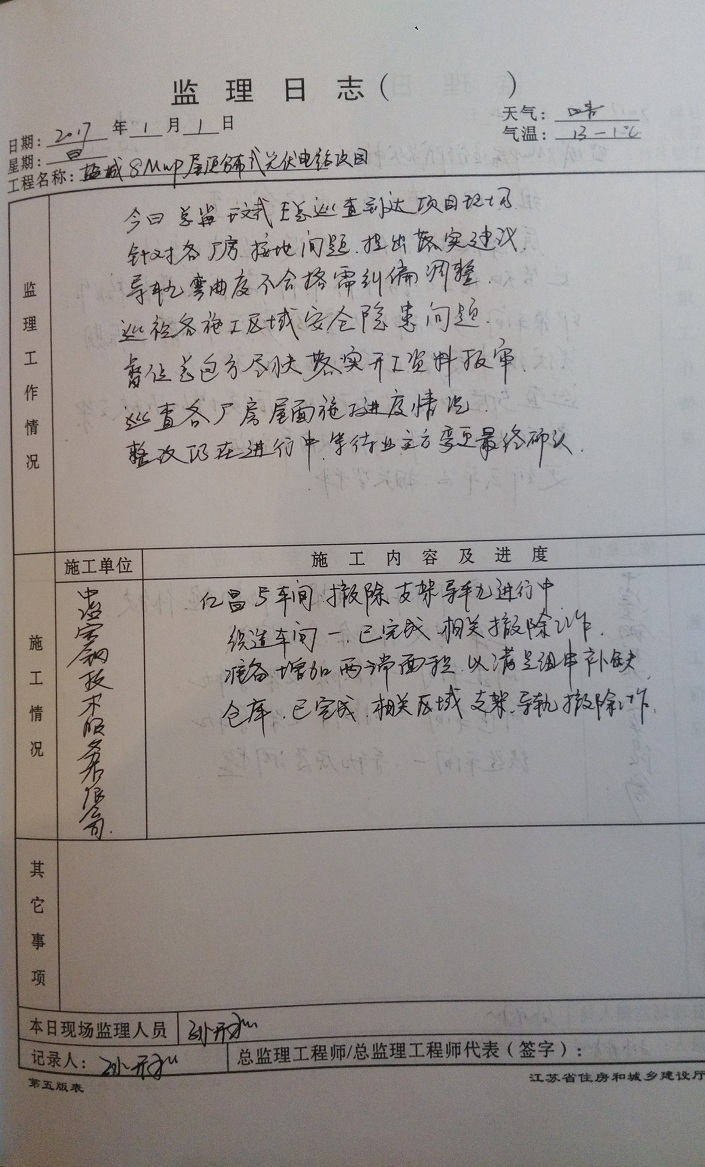 监理日志( )
日期: 2017 年 1 月 1 日
天气: 晴
星期: 日
气温: 13-1℃
工程名称: 盐城 8Mwp 屋顶 式光伏电站项目
监理工作情况
今日总监 巡查到达项目现场
针对各厂房接地问题.提出落实建议.
导轨弯曲度不合格需纠偏调整.
巡检各施工区域安全隐患问题.
督促总包方尽快落实开工资料报审.
巡查各厂房屋面施工进度情况.
整改仍在进行中.等待业主方 最终确认.
施工情况
施工单位
施工内容及进度
技术服务有限公司.
亿昌5车间 撤除支架导轨进行中
织造车间一.已完成.相关撤除工作.
准备增加两端面积.以满足组件补缺
仓库.已完成.相关区域支架.导轨撤除工作.
其它事项
本日现场监理人员 孙
记录人: 孙
总监理工程师/总监理工程师代表(签字):
第五版表
江苏省住房和城乡建设厅